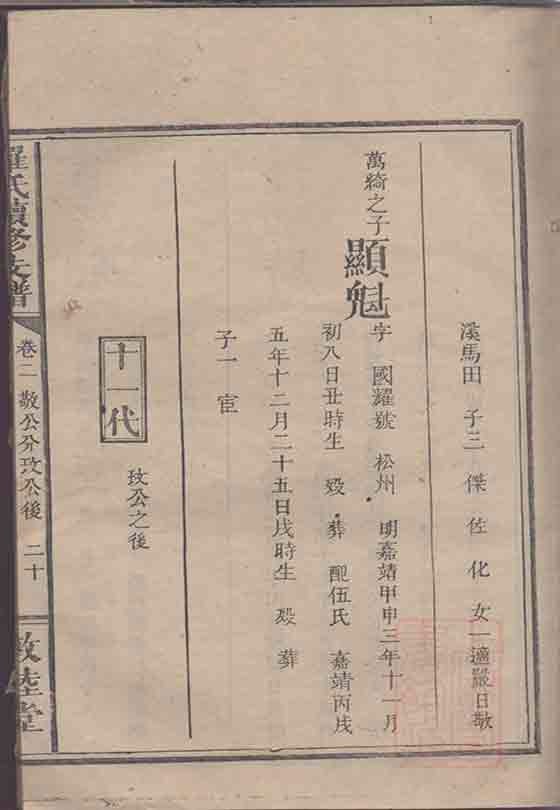 溪馬田 子三 傑 佐 化 女一適嚴日敬
萬綺之子
顯魁
字 國耀號 松州 明嘉靖甲申三年十一月
初八日丑時生 歿 葬 配伍氏 嘉靖丙戌
五年十二月二十五日戌時生 歿 葬
子一 宦
十一代
玫公之後
羅氏續修支譜
卷二 敬公分玫公後 二十
敦睦堂